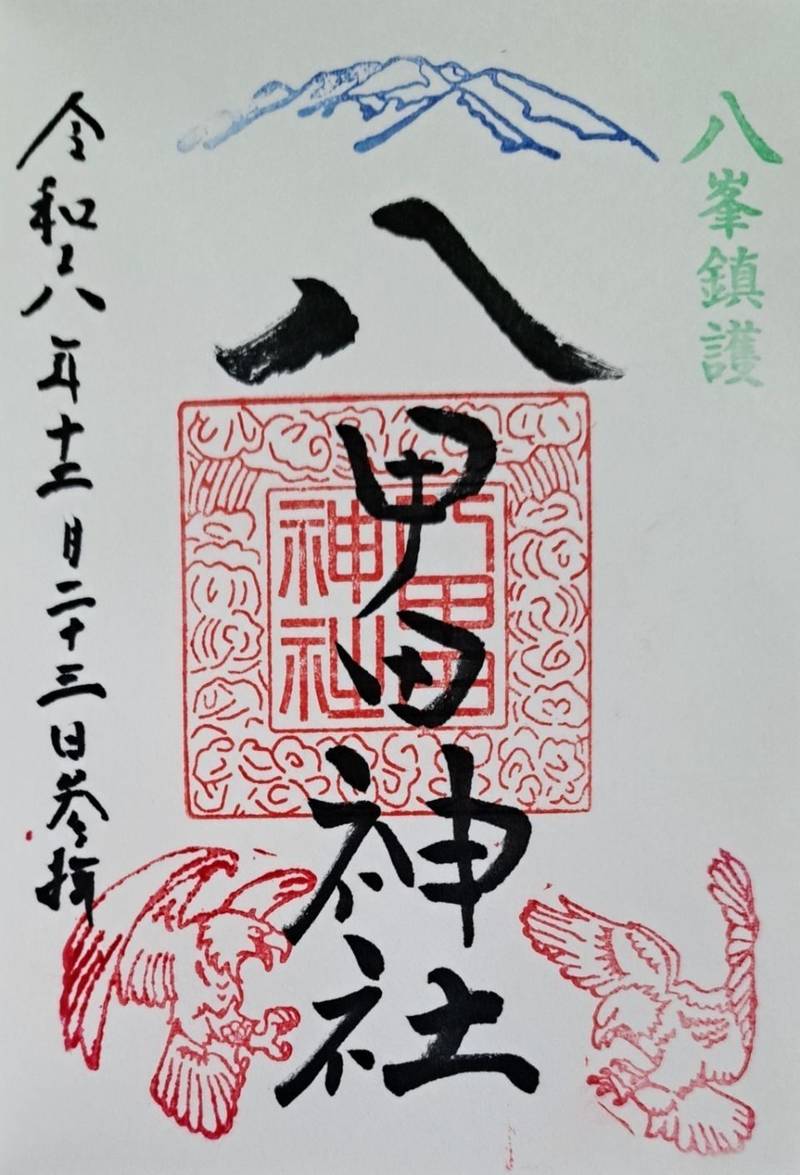 八峯鎮護
八甲田神社
八甲田
神社
令和六年十二月二十三日参拝